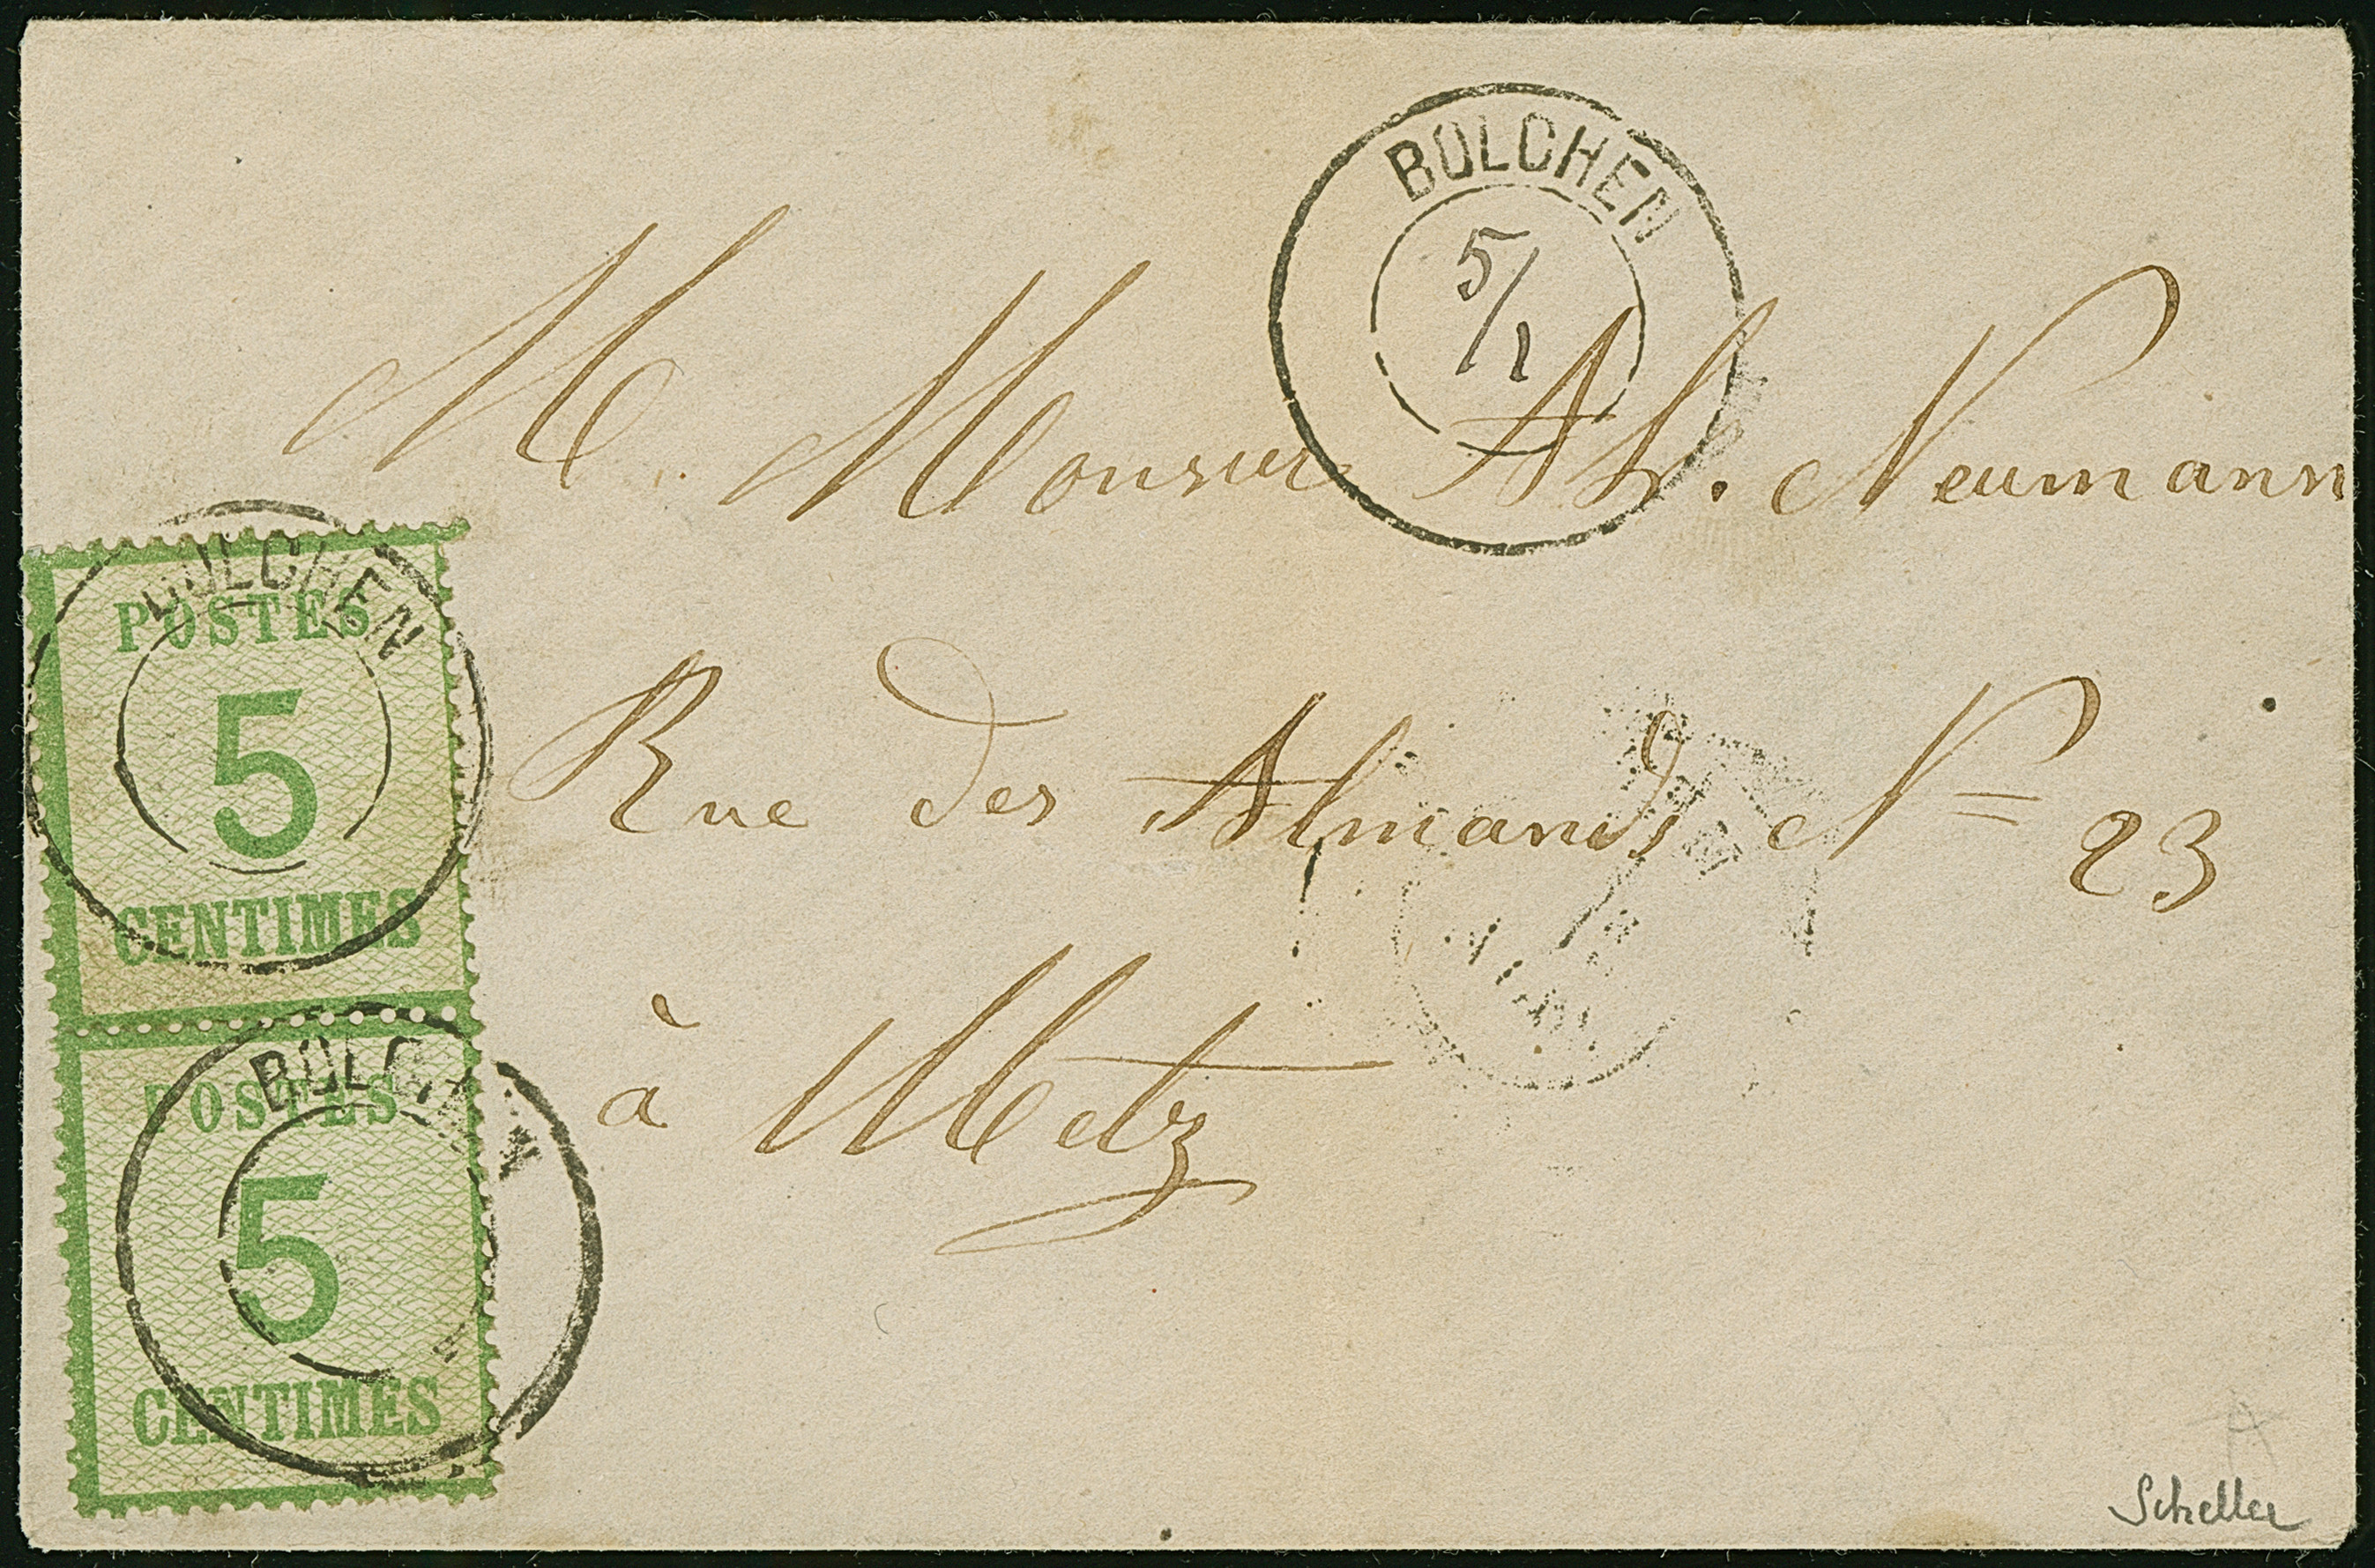 BOLCHEN
5/1
M. Monsieur Ab. Neumann
Rue des Almands N= 23
à Metz
BOLCHEN
POSTES
5
CENTIMES
BOLCHEN
POSTES
5
CENTIMES
Scheller